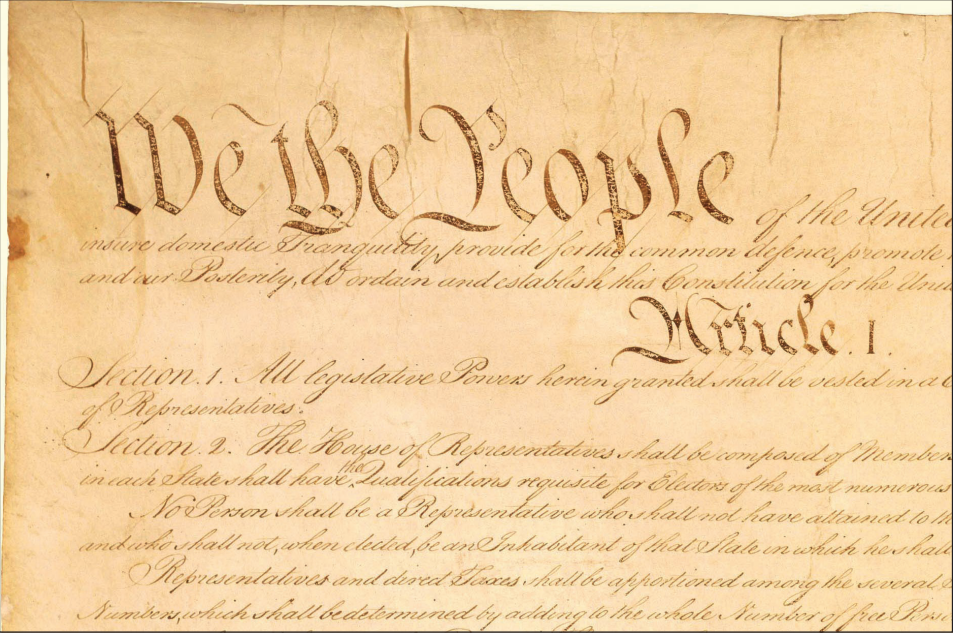 We the People of the United
insure domestic Tranquility, provide for the common defence, promote
and our Posterity, do ordain and establish this Constitution for the
Article. I.
Section. 1. All legislative Powers herein granted shall be vested in a
of Representatives.
Section. 2. The House of Representatives shall be composed of Members
in each State shall have the Qualifications requisite for Electors of the most numerous
No Person shall be a Representative who shall not have attained to
and who shall not, when elected, be an Inhabitant of that State in which he shall
Representatives and direct Taxes shall be apportioned among the several
Numbers, which shall be determined by adding to the whole Number of free